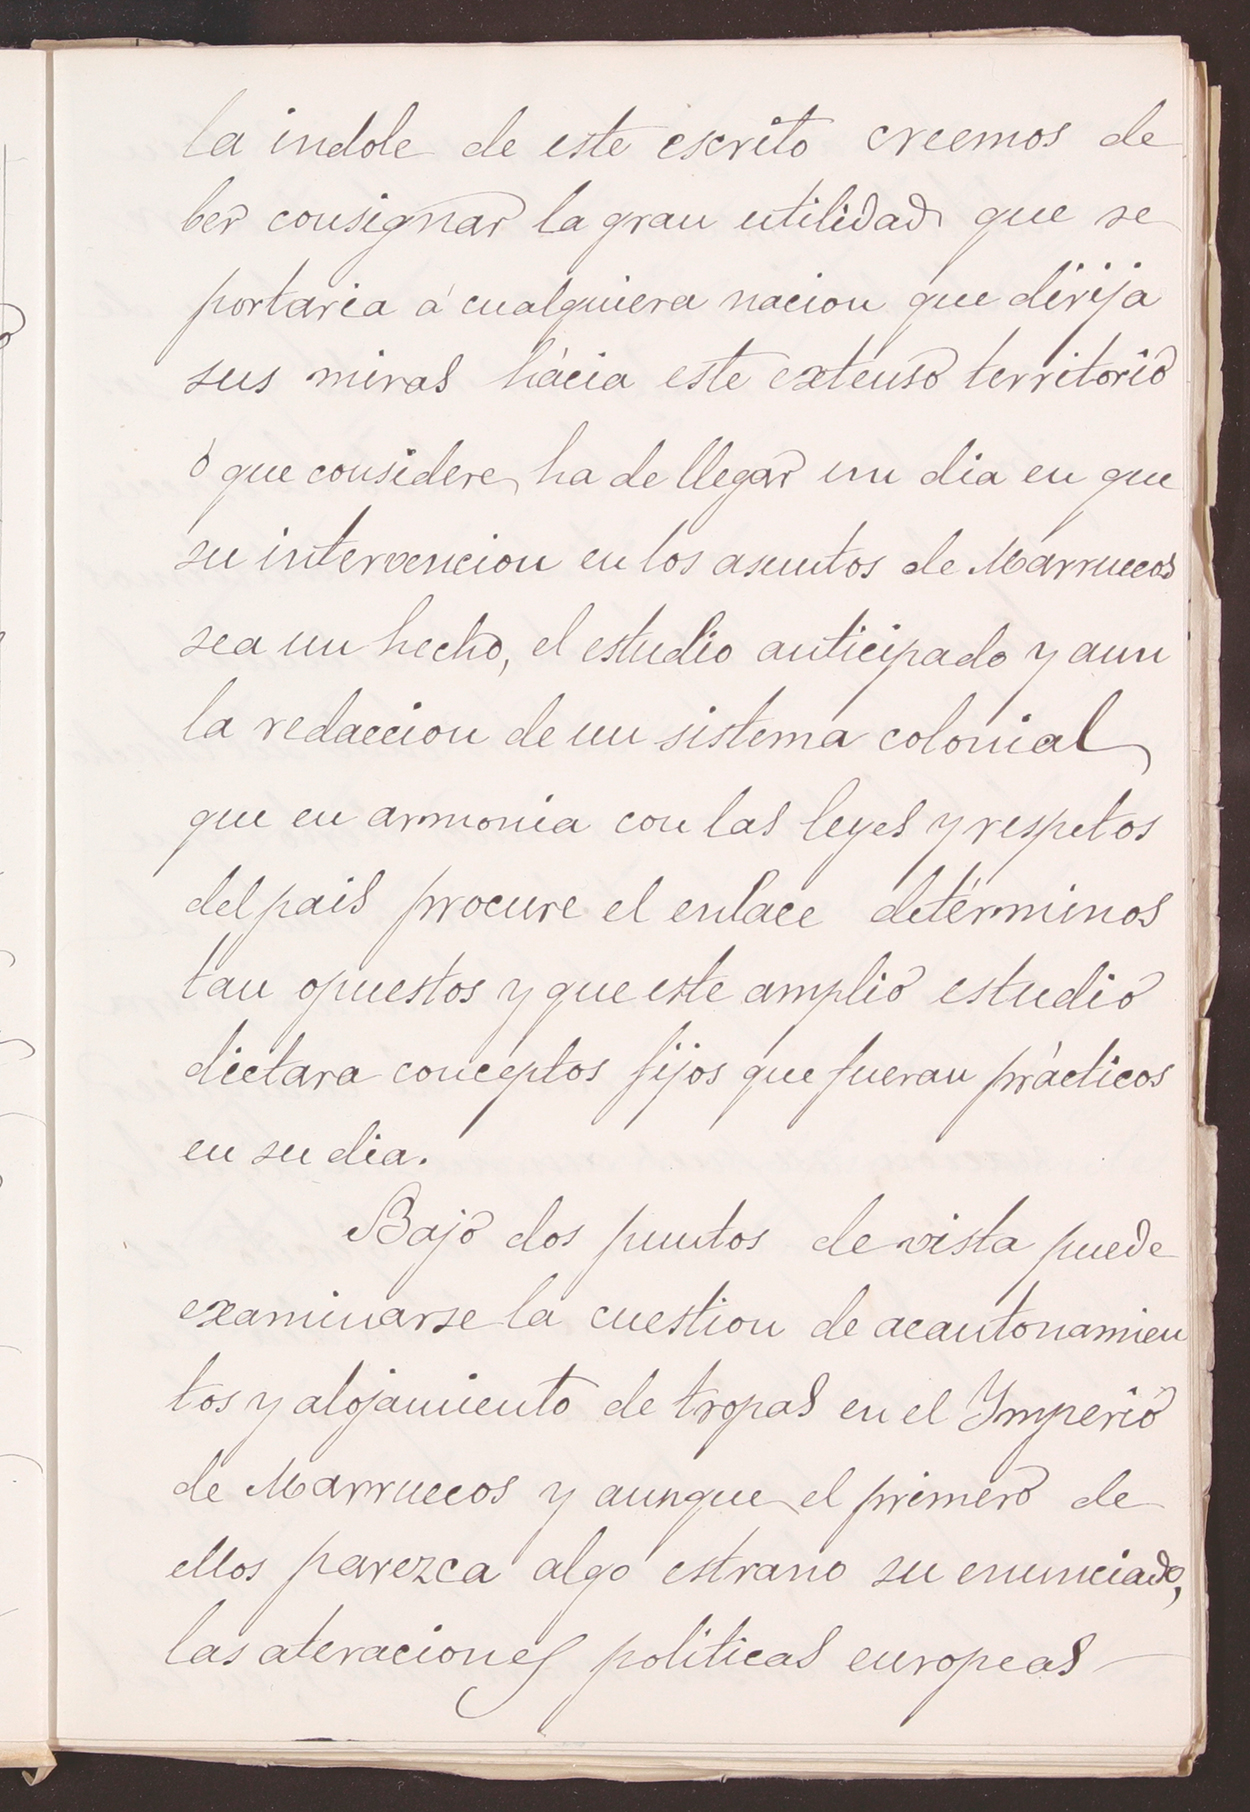 la indole de este escrito creemos de
ber consignar la gran utilidad que se
portaria á cualquiera nacion que dirija
sus miras hácia este extenso territorio
ó que considere ha de llegar un dia en que
su intervencion en los asuntos de Marruecos
sea un hecho, el estudio anticipado y aun
la redaccion de un sistema colonial
que en armonia con las leyes y respetos
del pais procure el enlace de términos
tan opuestos y que este amplio estudio
dictara conceptos fijos que fueran prácticos
en su dia.
Bajo dos puntos de vista puede
examinarse la cuestion de acantonamien
tos y alojamiento de tropas en el Ymperio
de Marruecos y aunque el primero de
ellos parezca algo estrano su enunciado,
las ateraciones politicas europeas